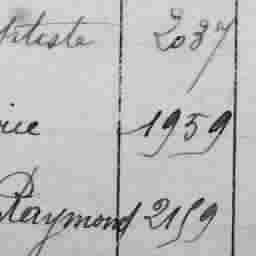 ptiste 2037
rice 1959
Raymond 2159